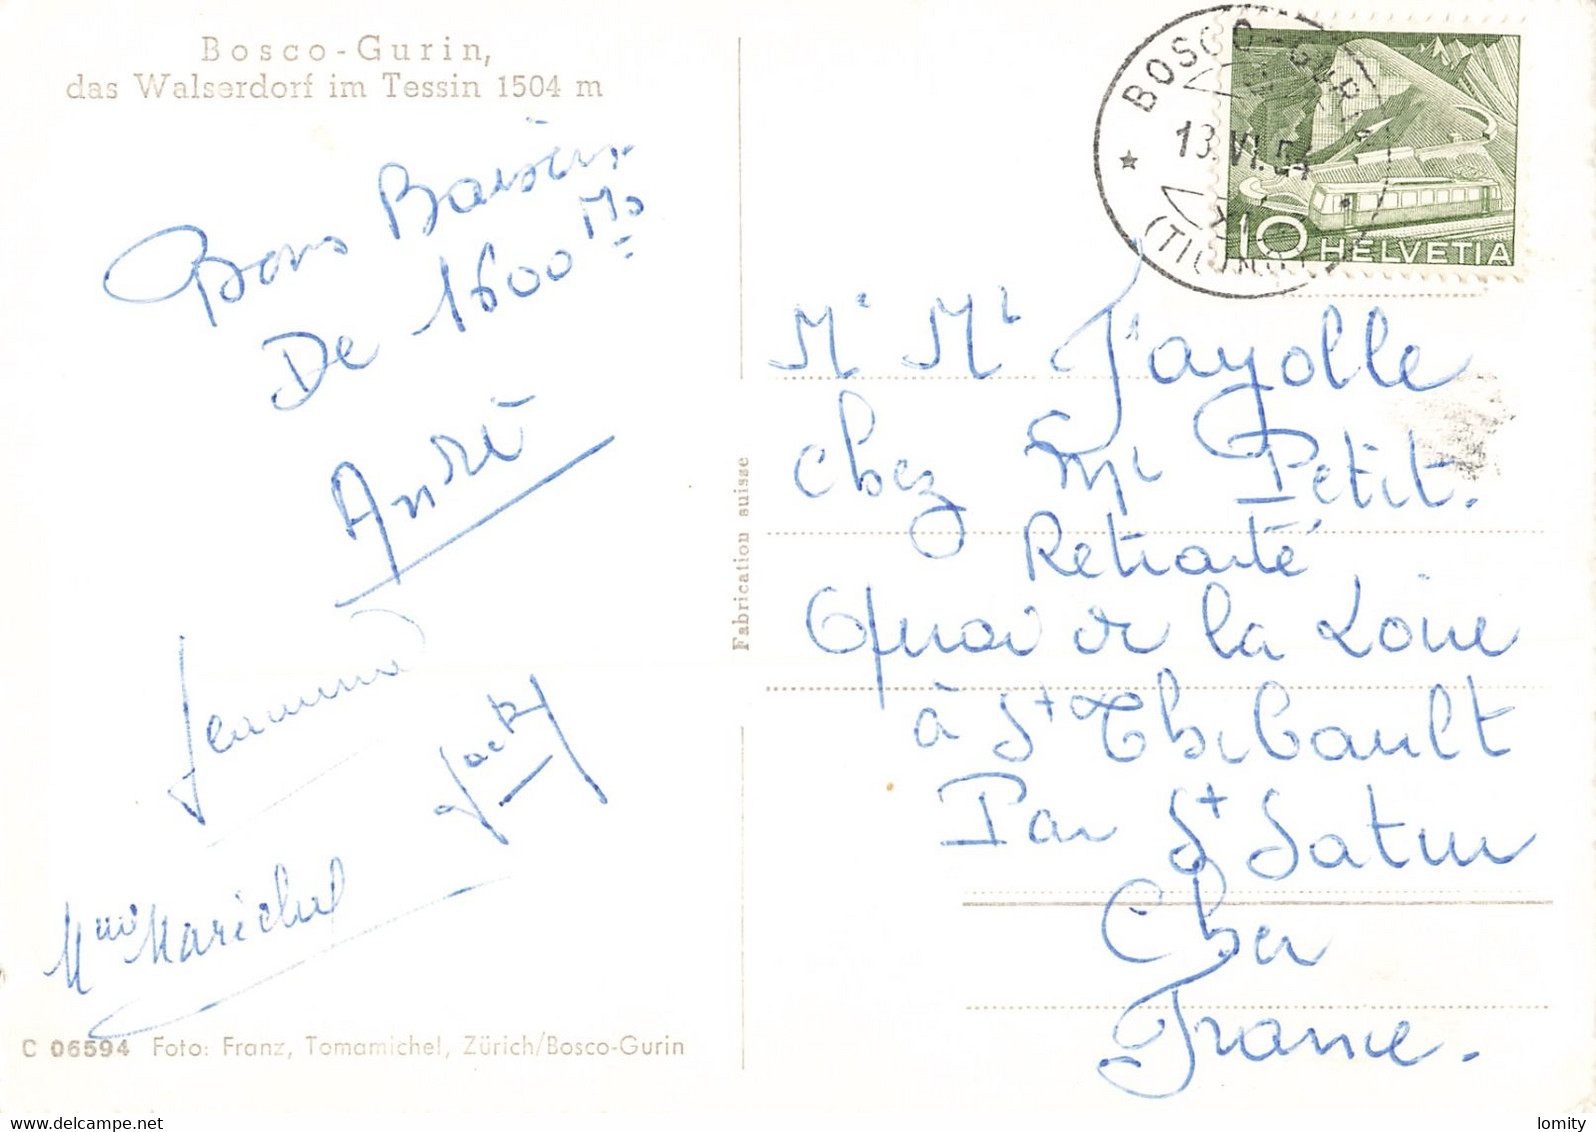 Bosco-Gurin,
das Walserdorf im Tessin 1504 m
Bons Baisers
De 1600 Ms
André
Jeannine
Jacky
Mme Maréchal
C 06594 Foto: Franz, Tomamichel, Zürich/Bosco-Gurin
Fabrication suisse
BOSCO-GURIN
13.VI.54
(TICINO)
10 HELVETIA
Mr Me Fayolle
chez Mr Petit.
Retraité
Quai de la Loire
à St Thibault
Par St Satur
Cher
France.
lomity